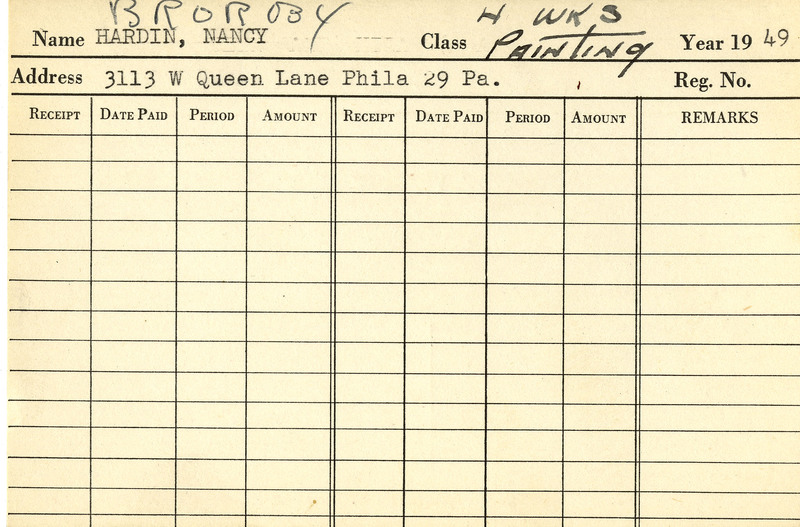 BRORBY 4 WKS
Name HARDIN, NANCY Class PAINTING Year 19 49
Address 3113 W Queen Lane Phila 29 Pa. Reg. No.
RECEIPT DATE PAID PERIOD AMOUNT RECEIPT DATE PAID PERIOD AMOUNT REMARKS